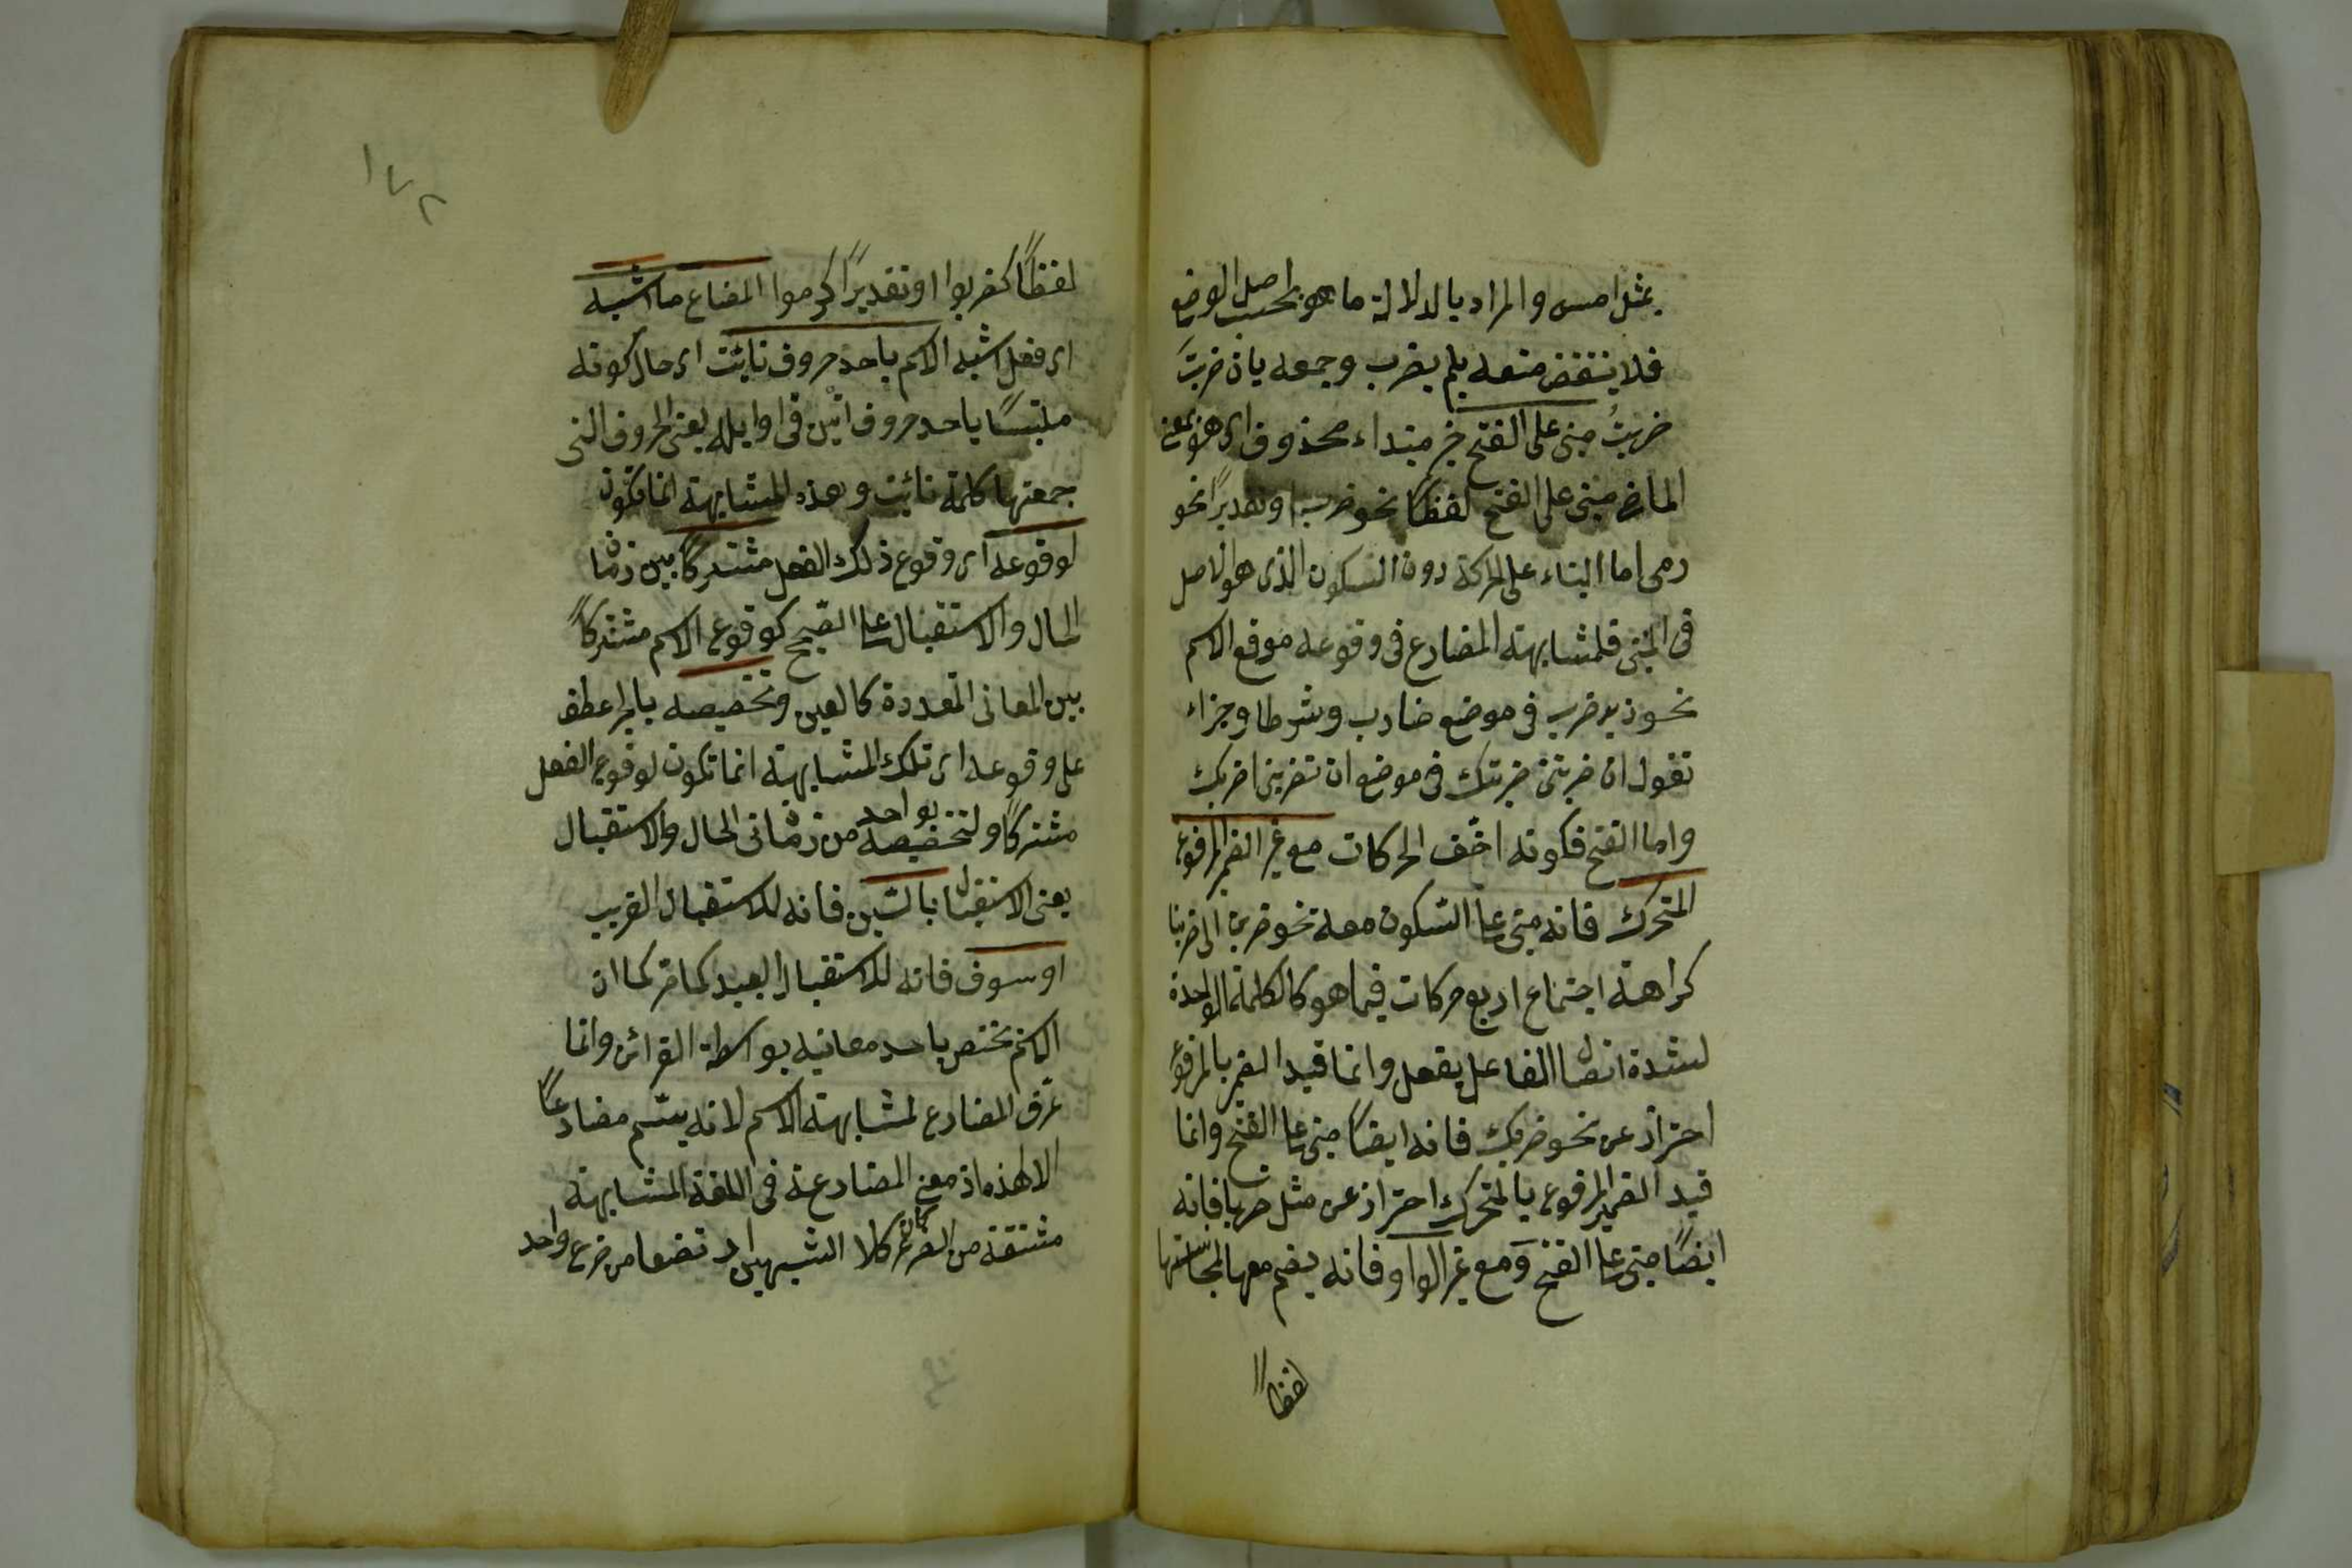 بمثل امس والمراد بالدلالة ما هو بحسب اصل الوضع
فلا ينتقض منعه بلم يضرب وجمعه بان ضربتَ
ضربتُ مبنى على الفتح خبر مبتداء محذوف اى هو يعنى
الماضى مبنى على الفتح لفظاً نحو ضرب او تقديراً نحو
رمى اما البناء على الحركة دون السكون الذى هو الاصل
فى المبنى فلمشابهته المضارع فى وقوعه موقع الاسم
نحو زيد ضرب فى موضع ضارب وشرطا وجزاء
تقول ان ضربتنى ضربتك فى موضع ان تضربنى اضربك
واما الفتح فلكونه اخّف الحركات مع غير الضمير المرفوع
المتحرك فانه مبنى على السّكون معه نحو ضربن الى ضربنا
كراهة اجتماع اربع حركات فيما هو كالكلمة الواحدة
لشدة اتصال الفاعل بفعل وانما قيد الضمير بالمرفوع
احتراز عن نحو ضربك فانه ايضاً مبنى على الفتح وانما
قيد الضمير المرفوع بالمتحرك احتراز عن مثل ضربا فانه
ايضاً مبنى على الفتح ومع غير الواو فانه يضم معها لمجانستها
لفظاً
١٧٢
لفظاً كضربوا او تقديراً كرموا المضارع ما اشبه
اى فعل اشبه الاسم باحد حروف نائت اى حال كونه
ملتبساً باحد حروف اتين فى اوايله يعنى الحروف التى
جمعتها كلمة نائت وهذه المشابهة انما تكون
لوقوعه اى وقوع ذلك الفعل مشتركاً بين زمان
الحال والاستقبال على الصّحيح كوقوع الاسم مشتركاً
بين المعانى المتعددة كالعين وتخصيصه بالجر عطف
على وقوعه اى تلك المشابهة انما تكون لوقوع الفعل
مشتركاً ولتخصيصه بواحد من زمانى الحال والاستقبال
يعنى الاستقبال بالسّين فانه للاستقبال القريب
او سوف فانه للاستقبال البعيد كما مر كما ان
الاسم يختص باحد معانيه بواسطة القرائن وانما
عرّف المضارع لمشابهته الاسم لانه يسّم مضارعاً
الا لهذه اذ معنى المضارعة فى اللغة المشابهة
مشتقة من الضرع كان كلا الشبهين ارتضعا من ضرع واحد